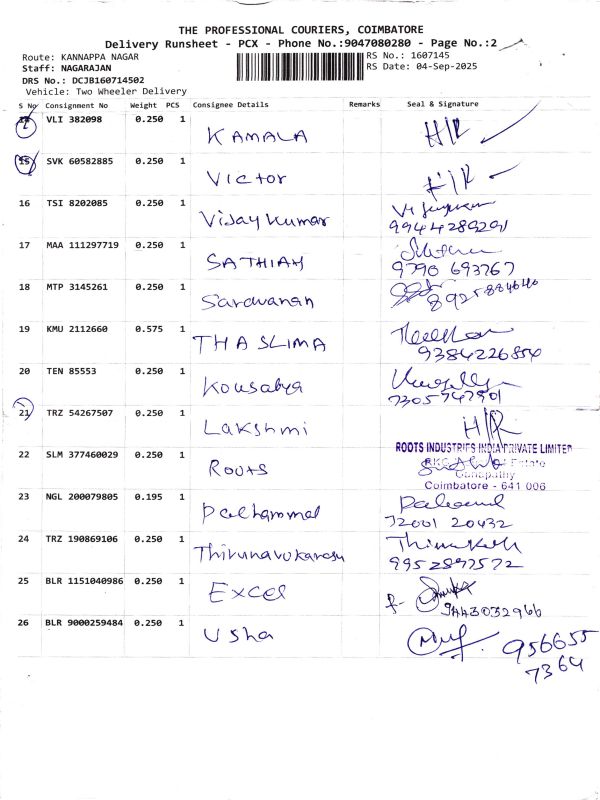 THE PROFESSIONAL COURIERS, COIMBATORE
Delivery Runsheet - PCX - Phone No.:9047080280 - Page No.:2
Route: KANNAPPA NAGAR
RS No.: 1607145
Staff: NAGARAJAN
RS Date: 04-Sep-2025
DRS No.: DCJB160714502
Vehicle: Two Wheeler Delivery
S No Consignment No Weight PCS Consignee Details Remarks Seal & Signature
VLI 382098 0.250 1 KAMALA H/R
15 SVK 60582885 0.250 1 Victor H/R
16 TSI 8202085 0.250 1 Vijay kumar
9944289291
17 MAA 111297719 0.250 1 SATHIAH
9790 693767
18 MTP 3145261 0.250 1 Saravanan
19 KMU 2112660 0.575 1 THASLIMA
9384226854
20 TEN 85553 0.250 1 Kousalya
7305747901
21 TRZ 54267507 0.250 1 Lakshmi H/R
22 SLM 377460029 0.250 1 Roots
ROOTS INDUSTRIES INDIA PRIVATE LIMITED
Estate
Ganapathy
Coimbatore - 641 006
23 NGL 200079805 0.195 1 Palhammal
72001 20432
24 TRZ 190869106 0.250 1 Thirunavukarasu
9952897572
25 BLR 1151040986 0.250 1 Excel
9443032966
26 BLR 9000259484 0.250 1 Usha
956655
7364